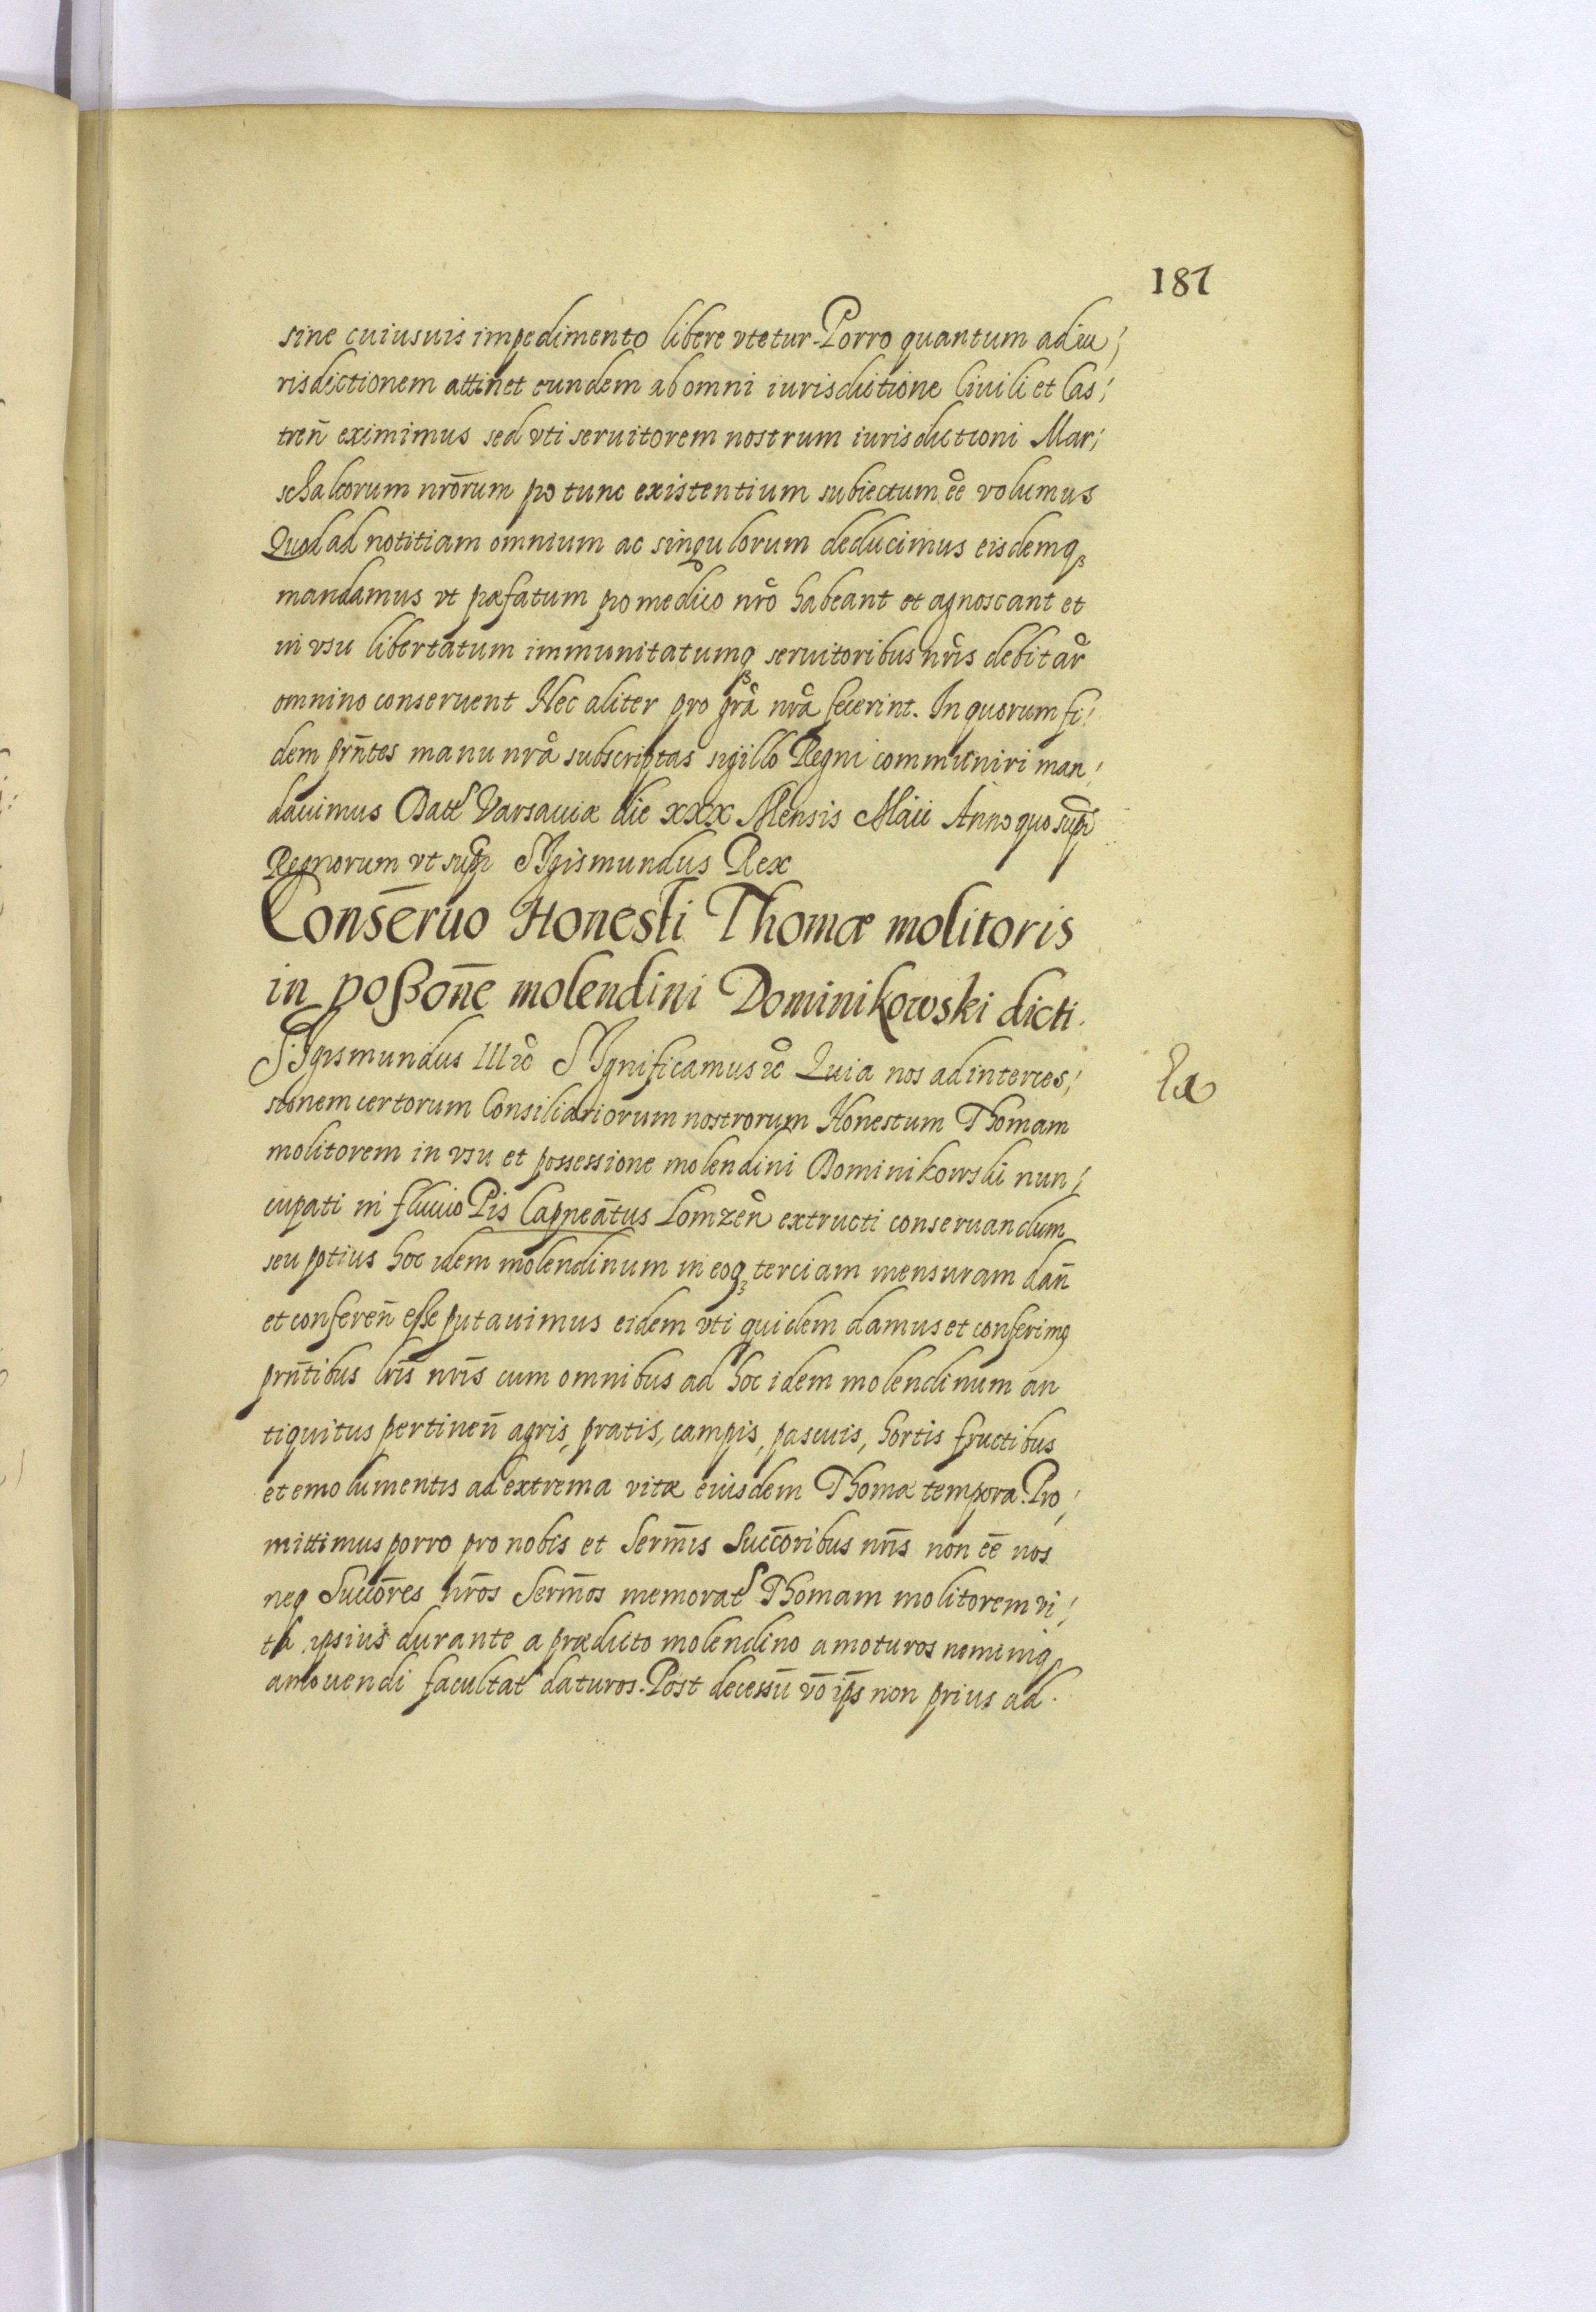 187
sine cuiusuis impedimento libere vtetur. Porro quantum ad iu/
risdictionem attinet eundem ab omni iurisdictione Ciuili et Cas/
treñ eximimus sed vti seruitorem nostrum iurisdictioni Mar/
schalcorum nrōrum pro tunc existentium subiectum ee̊ volumus
Quod ad notitiam omnium ac singulorum deducimus eisdemqꝫ
mandamus vt præfatum pro medico nro̊ habeant et agnoscant et
in vsu libertatum immunitatumqꝫ seruitoribus nr̊is debitar̊
omnino conseruent Nec aliter pro grå nrå fecerint. In quorum fi/
dem prñtes manu nrå subscriptas sigillo Regni communiri man/
dauimus Dat Varsauiæ die XXX Mensis Maii Anno quo supr
Regnorum vt supr Sigismundus Rex
Consēruo Honesti Thomæ molitoris
in poßonē molendini Dominikowski dicti.
Sigismundus III ꝛc̊ Significamus ꝛc̊ Quia nos ad interces/
sionem certorum Consiliariorum nostrorum Honestum Thomam
molitorem in vsu et possessione molendini Dominikowski nun/
cupati in fluuio Pis Capneātus Lomzen̊ extructi conseruandum
seu potius hoc idem molendinum in eoqꝫ terciam mensuram dañ
et confereñ esse putauimus eidem vti quidem damus et conferimq
prñtibus lris̄ nris̄ cum omnibus ad hoc idem molendinum an
tiquitus pertineñ agris, pratis, campis, pascuis, hortis fructibus
et emolumentis ad extrema vitæ eiusdem Thomæ tempora. Pro/
mittimus porro pro nobis et Serm̄is Succōribus nris̄ non eē nos
neq Succōres nrōs Serm̄os memorat Thomam molitorem vi/
ta ipsius durante a prædicto molendino amoturos neminiqꝫ
amouendi facultat daturos. Post decessū vō ips̄ non prius ad.